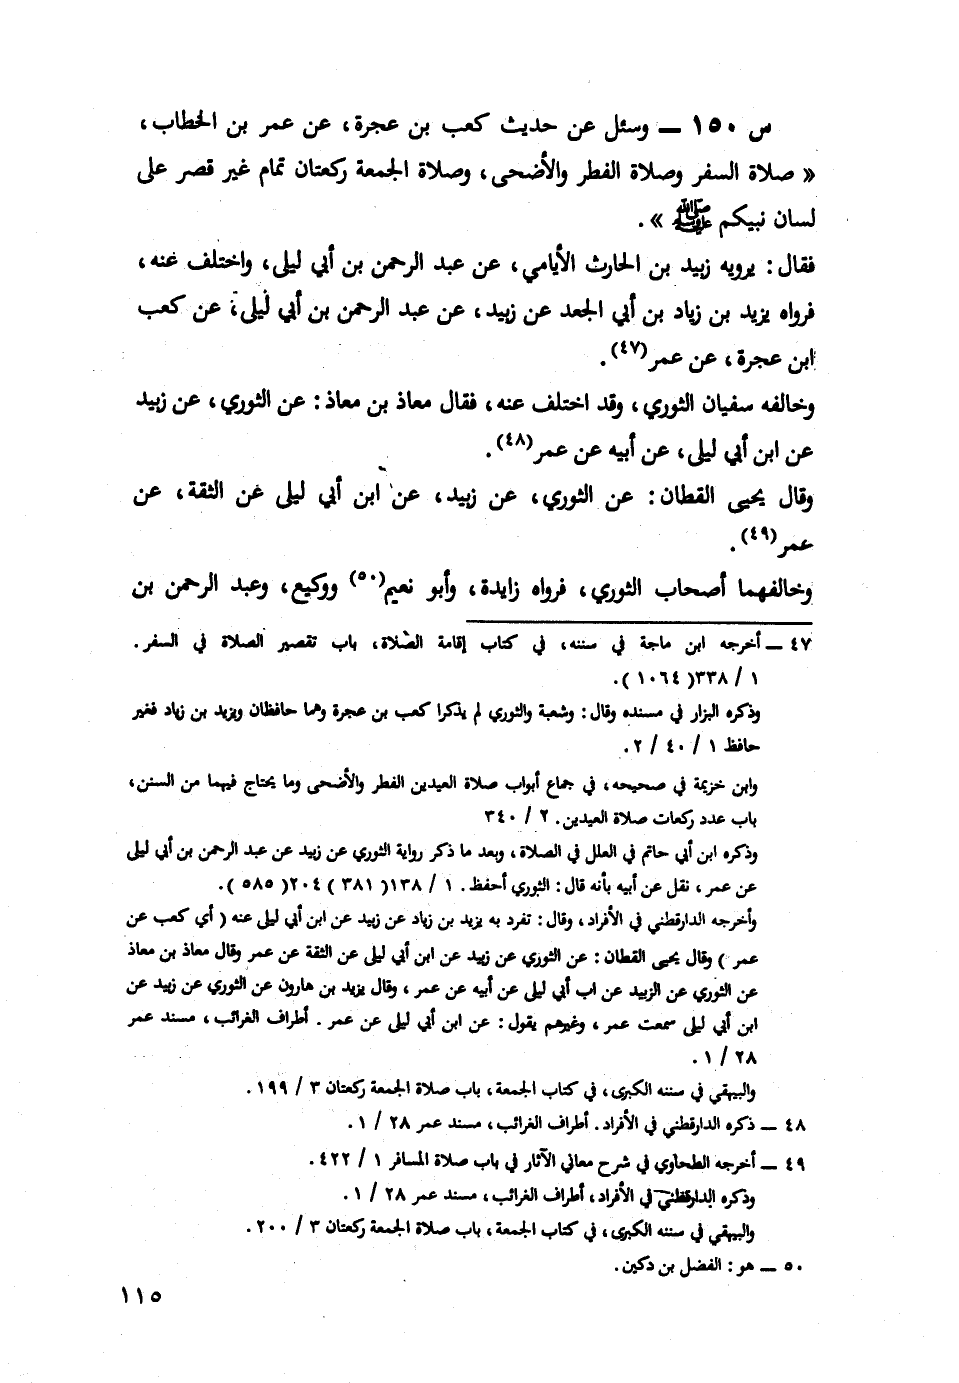 س ١٥٠ ــ وسئل عن حديث كعب بن عجرة، عن عمر بن الخطاب،
« صلاة السفر وصلاة الفطر والأضحى، وصلاة الجمعة ركعتان تمام غير قصر على
لسان نبيكم ﷺ ».
فقال: يرويه زبيد بن الحارث الأيامي، عن عبد الرحمن بن أبي ليلى، واختلف عنه،
فرواه يزيد بن زياد بن أبي الجعد عن زبيد، عن عبد الرحمن بن أبي ليلى، عن كعب
ابن عجرة، عن عمر(٤٧).
وخالفه سفيان الثوري، وقد اختلف عنه، فقال معاذ بن معاذ: عن الثوري، عن زبيد
عن ابن أبي ليلى، عن أبيه عن عمر(٤٨).
وقال يحيى القطان: عن الثوري، عن زبيد، عن ابن أبي ليلى عن الثقة، عن
عمر(٤٩).
وخالفهما أصحاب الثوري، فرواه زايدة، وأبو نعيم(٥٠) ووكيع، وعبد الرحمن بن
٤٧ ــ أخرجه ابن ماجة في سننه، في كتاب إقامة الصلاة، باب تقصير الصلاة في السفر.
١ / ٣٣٨( ١٠٦٤ ).
وذكره البزار في مسنده وقال: وشعبة والثوري لم يذكرا كعب بن عجرة وهما حافظان ويزيد بن زياد فغير
حافظ ١ / ٤٠ / ٢.
وابن خزيمة في صحيحه، في جماع أبواب صلاة العيدين الفطر والأضحى وما يحتاج فيهما من السنن،
باب عدد ركعات صلاة العيدين. ٢ / ٣٤٠
وذكره ابن أبي حاتم في العلل في الصلاة، وبعد ما ذكر رواية الثوري عن زبيد عن عبد الرحمن بن أبي ليلى
عن عمر، نقل عن أبيه بأنه قال: الثوري أحفظ. ١ / ١٣٨( ٣٨١ ) ٢٠٤( ٥٨٥ ).
وأخرجه الدارقطني في الأفراد، وقال: تفرد به يزيد بن زياد عن زبيد عن ابن أبي ليلى عنه ( أي كعب عن
عمر ) وقال يحيى القطان: عن الثوري عن زبيد عن ابن أبي ليلى عن الثقة عن عمر وقال معاذ بن معاذ
عن الثوري عن الزبيد عن اب أبي ليلى عن أبيه عن عمر، وقال يزيد بن هارون عن الثوري عن زبيد عن
ابن أبي ليلى سمعت عمر، وغيرهم يقول: عن ابن أبي ليلى عن عمر. أطراف الغرائب، مسند عمر
٢٨ / ١.
والبيهقي في سننه الكبرى، في كتاب الجمعة، باب صلاة الجمعة ركعتان ٣ / ١٩٩.
٤٨ ــ ذكره الدارقطني في الأفراد. أطراف الغرائب، مسند عمر ٢٨ / ١.
٤٩ ــ أخرجه الطحاوي في شرح معاني الآثار في باب صلاة المسافر ١ / ٤٢٢.
وذكره الدارقطني في الأفراد، أطراف الغرائب، مسند عمر ٢٨ / ١.
والبيهقي في سننه الكبرى، في كتاب الجمعة، باب صلاة الجمعة ركعتان ٣ / ٢٠٠.
٥٠ ــ هو: الفضل بن دكين.
١١٥